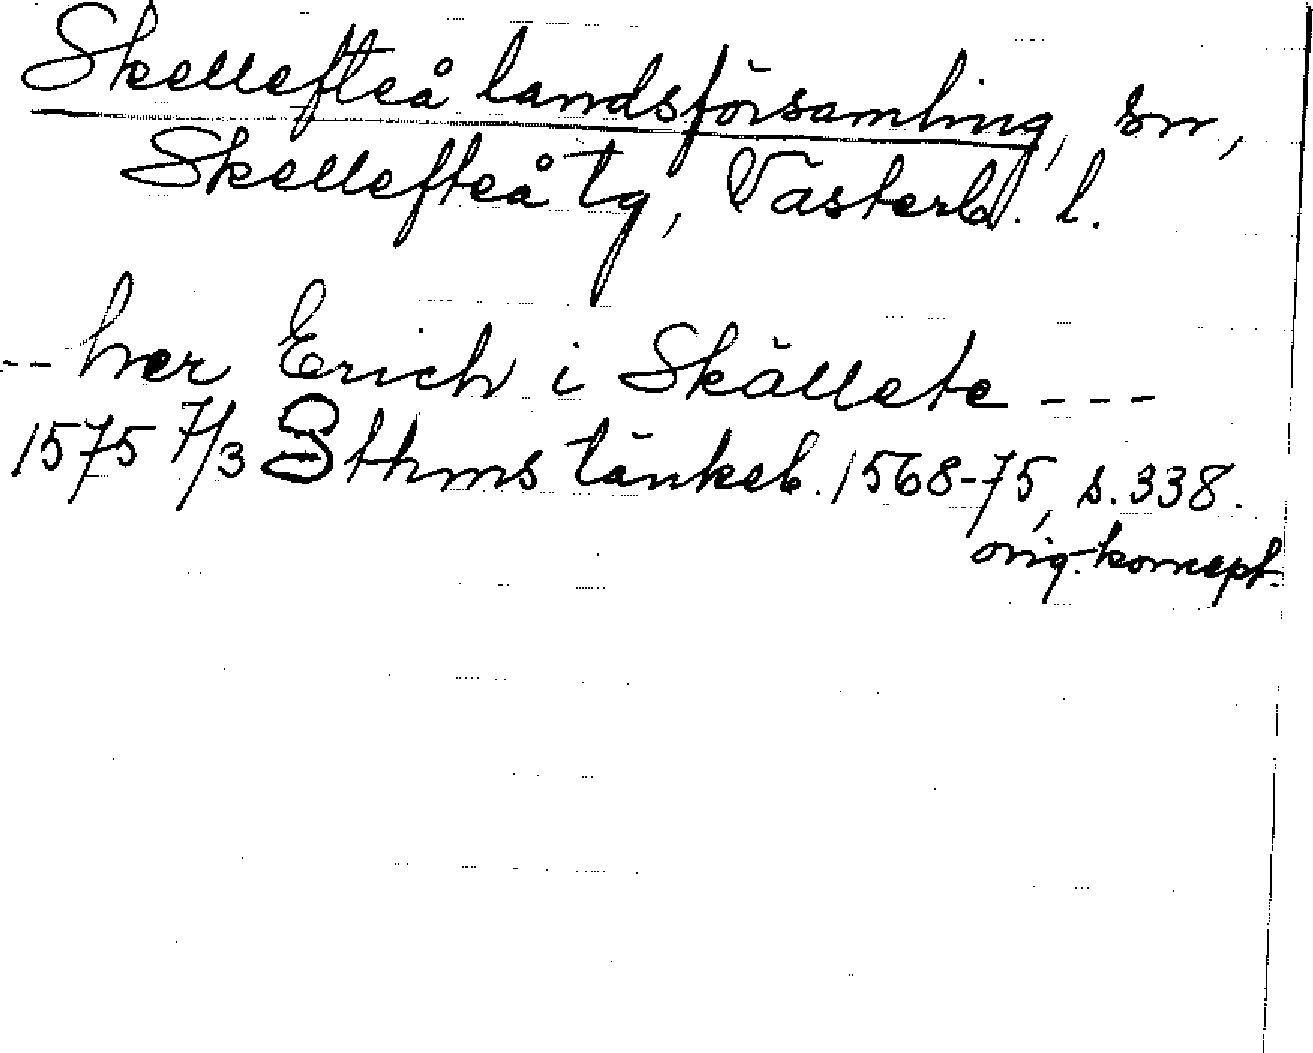 Skellefteå landsförsamling, sn,
Skellefteå tg, Västerb. l.
--- her Erich i Skällete ---
1575 7/3 Sthms tänkeb. 1568-75, s. 338.
orig. koncept.